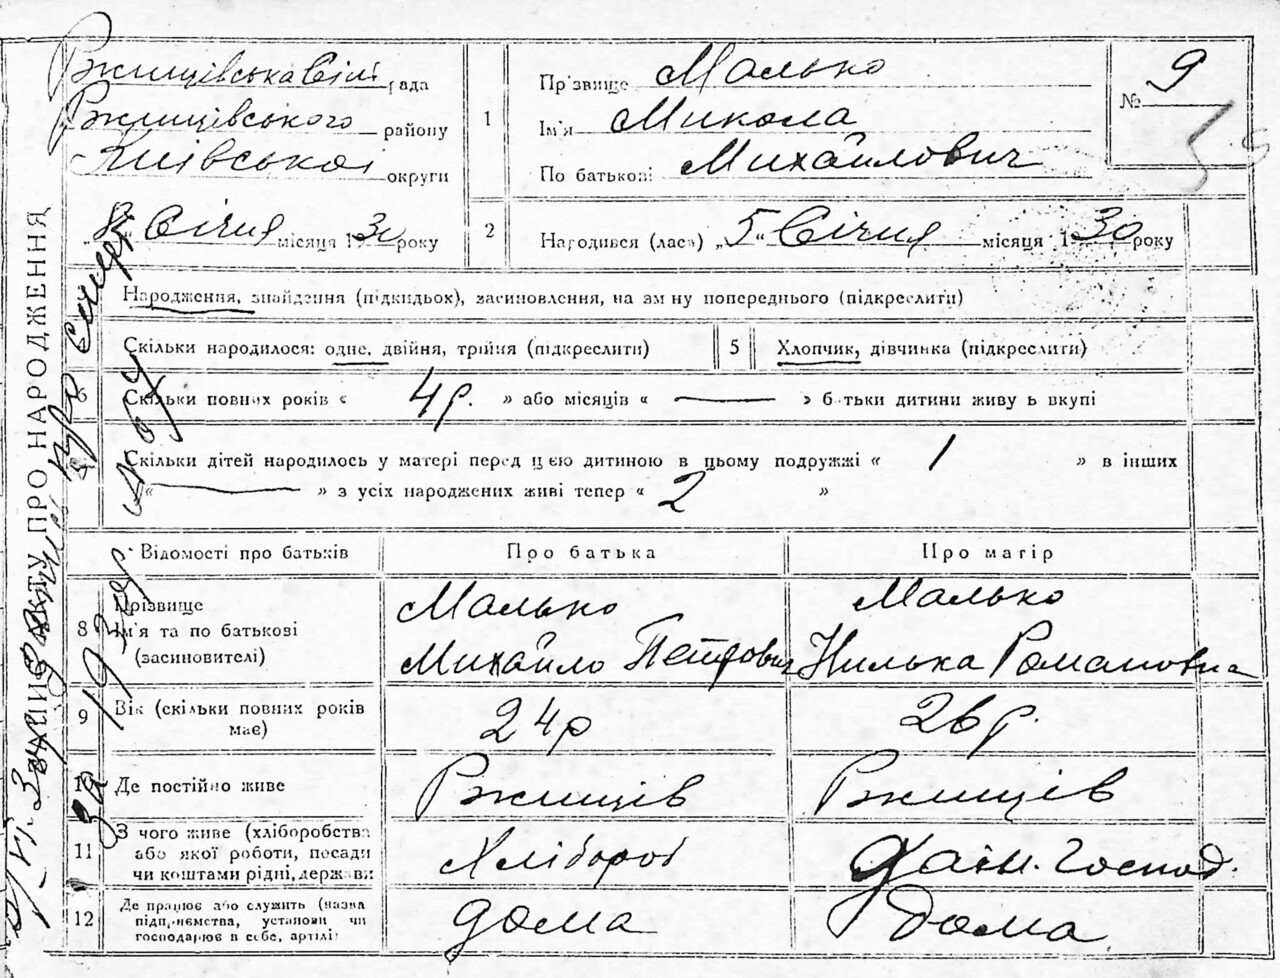 Ржищівська Сіл рада
Ржищівського району
Київської округи
„8“ Січня місяця 1930 року
1
Прізвище Малько
Ім'я Микола
По батькові Михайлович
№ 9
2
Народився (лася) „5“ Січня місяця 1930 року
Народження, знайдення (підкидьох), засиновлення, на зміну попереднього (підкреслити)
Скільки народилося: одне, двійня, трійня (підкреслити)
5
Хлопчик, дівчинка (підкреслити)
6
Скільки повних років « 4р. » або місяців « — » батьки дитини живуть вкупі
Скільки дітей народилось у матері перед цією дитиною в цьому подружжі « 1 » в інших
« — » з усіх народжених живі тепер « 2 »
Відомості про батьків
Про батька
Про матір
8
Прізвище
Ім'я та по батькові
(засиновителі)
Малько
Михайло Петрович
Малько
Нилька Романовна
9
Вік (скільки повних років
має)
24р
26р.
10
Де постійно живе
Ржищів
Ржищів
11
З чого живе (хліборобства
або якої роботи, посади
чи коштами рідні, держави
Хлібороб
Дом. Господ.
12
Де працює або служить (назва
підприємства, установи чи
господарює в себе, артілі)
дома
дома
ПРО НАРОДЖЕННЯ
за 193